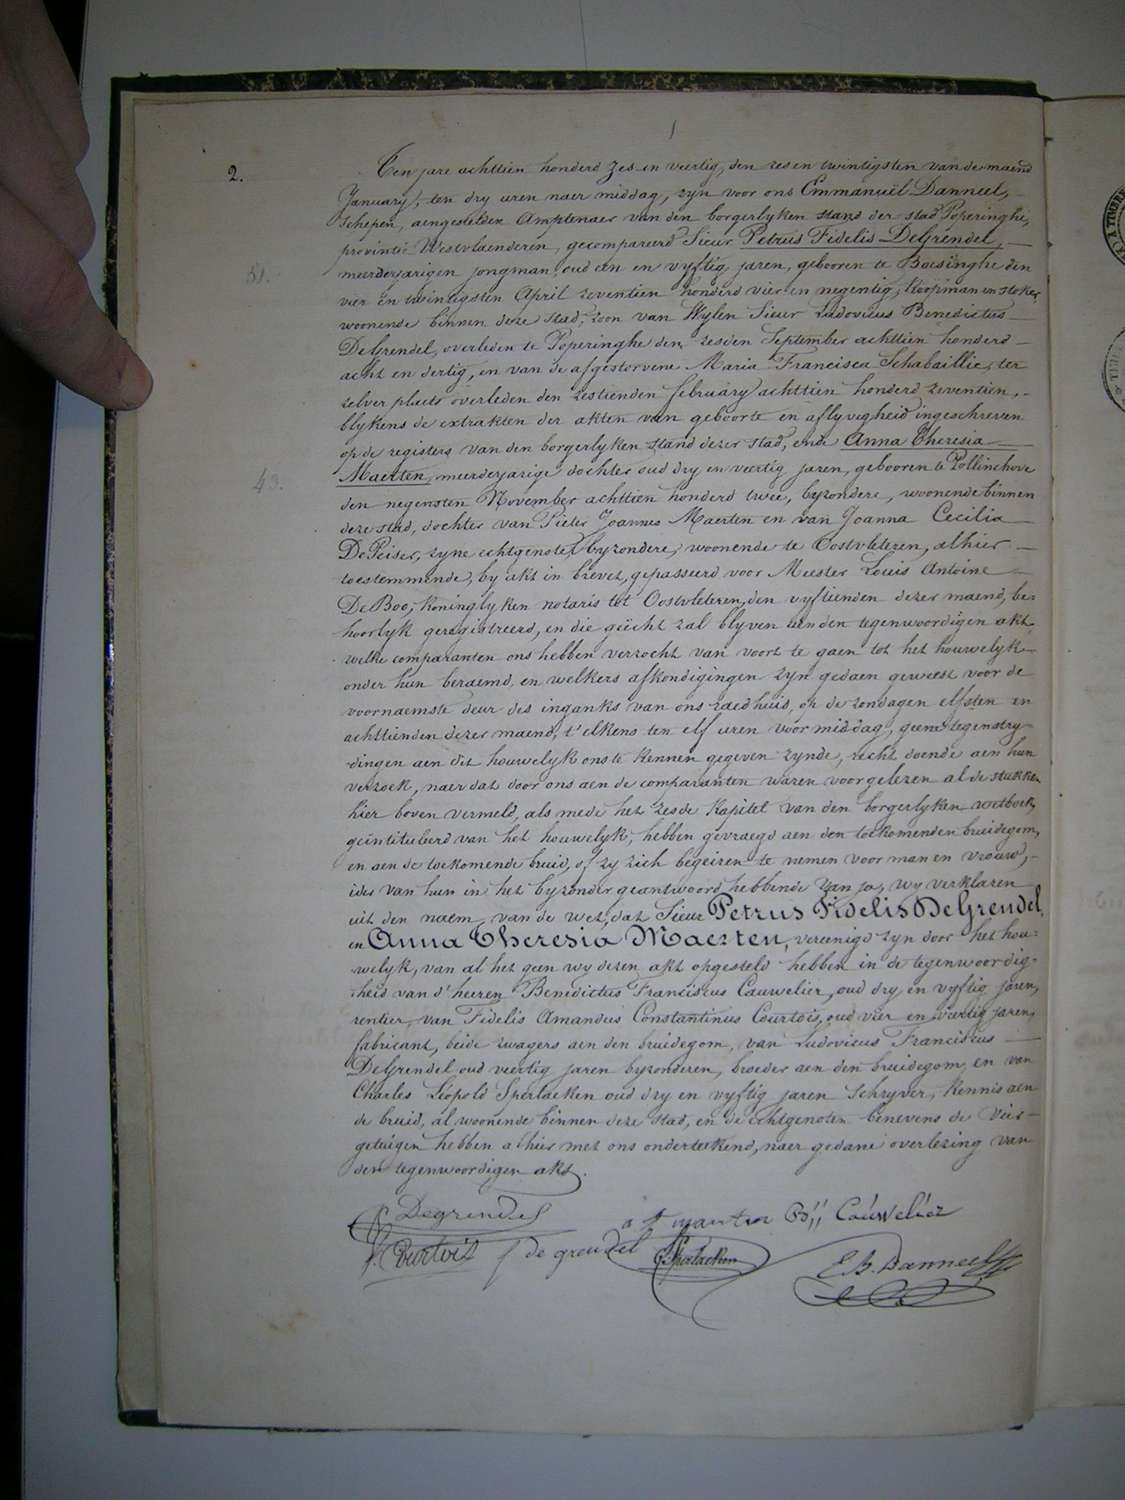 1
2.
Ten jare achttien honderd Zes en veertig, den zes en twintigsten van de maend
January, ten dry uren naer middag, zyn voor ons Emmanuël Danneel,
Schepen, aengestelden Amptenaer van den borgerlyken stand der stad Poperinghe,
provintie Westvlaenderen, gecompareerd Sieur Petrus Fidelis DeGrendel,
51.
meerderjarigen jongman, oud een en vyftig jaren, gebooren te Boesinghe den
vier en twintigsten April zeventien honderd vier en negentig, Koopman en stoker
woonende binnen deze stad, zoon van Wylen Sieur Ludovicus Benedictus
DeGrendel, overleden te Poperinghe den zesden September achttien honderd
acht en dertig, en van de afgestorvene Maria Francisca Schabaillie, ter
zelver plaets overleden den zestienden february achttien honderd zeventien,
blykens de extrakten der akten van geboorte en aflyvigheid ingeschreven
op de registers van den borgerlyken stand dezer stad, ende Anna Theresia
43.
Maerten, meerderjarige dochter oud dry en veertig jaren, gebooren te Pollinchove
den negensten November achttien honderd twee, byzondere, woonende binnen
deze stad, dochter van Pieter Joannes Maerten en van Joanna Cecilia
De Peiser, zyne echtgenote, byzondere, woonende te Oostvleteren, alhier
toestemmende, by akt in brevet, gepasseerd voor Meester Louis Antoine
De Boo, koninglyken notaris tot Oostvleteren, den vyftienden dezer maend, be-
hoorlyk geregistreerd, en die geëcht zal blyven aen den tegenwoordigen akt,
welke comparanten ons hebben verzocht van voort te gaen tot het houwelyk
onder hun beraemd, en welkers afkondigingen zyn gedaen geweest voor de
voornaemste deur des ingangs van ons raedhuis, op de zondagen elfsten en
achttienden dezer maend, t'elkens ten elf uren voor middag, geene tegenstry-
dingen aen dit houwelyk ons te kennen gegeven zynde, recht doende aen hun
verzoek, naer dat door ons aen de comparanten waren voorgelezen al de stukken
hier boven vermeld, als mede het zesde Kapitel van den borgerlyken wetboek,
geïntituleerd van het houwelyk, hebben gevraegd aen den toekomenden bruidegom,
en aen de toekomende bruid, of zy zich begeiren te nemen voor man en vrouw,
ider van hun in het byzonder geantwoord hebbende van ja, wy verklaren
uit den naem van de wet, dat Sieur Petrus Fidelis DeGrendel,
en Anna Theresia Maerten, vereenigd zyn door het hou-
welyk, van al het geen wy dezen akt opgesteld hebben in de tegenwoordig-
heid van d'heeren Benedictus Franciscus Cauwelier, oud dry en vyftig jaren,
rentier, van Fidelis Amandus Constantinus Courtois, oud vier en veertig jaren,
fabricant, beide zwagers aen den bruidegom, van Ludovicus Franciscus
DeGrendel oud veertig jaren byzonderen, broeder aen den bruidegom, en van
Charles Léopold Sperlaeken oud dry en vyftig jaren Schryver, kennis aen
de bruid, al woonende binnen deze stad, en de echtgenoten benevens de vier
getuigen hebben alhier met ons onderteekend, naer gedane overlezing van
den tegenwoordigen akt.
P. Degrendel a T maerten B F Cauwelier
f. Courtois f de grendel C Sperlaeken E. B. Danneel